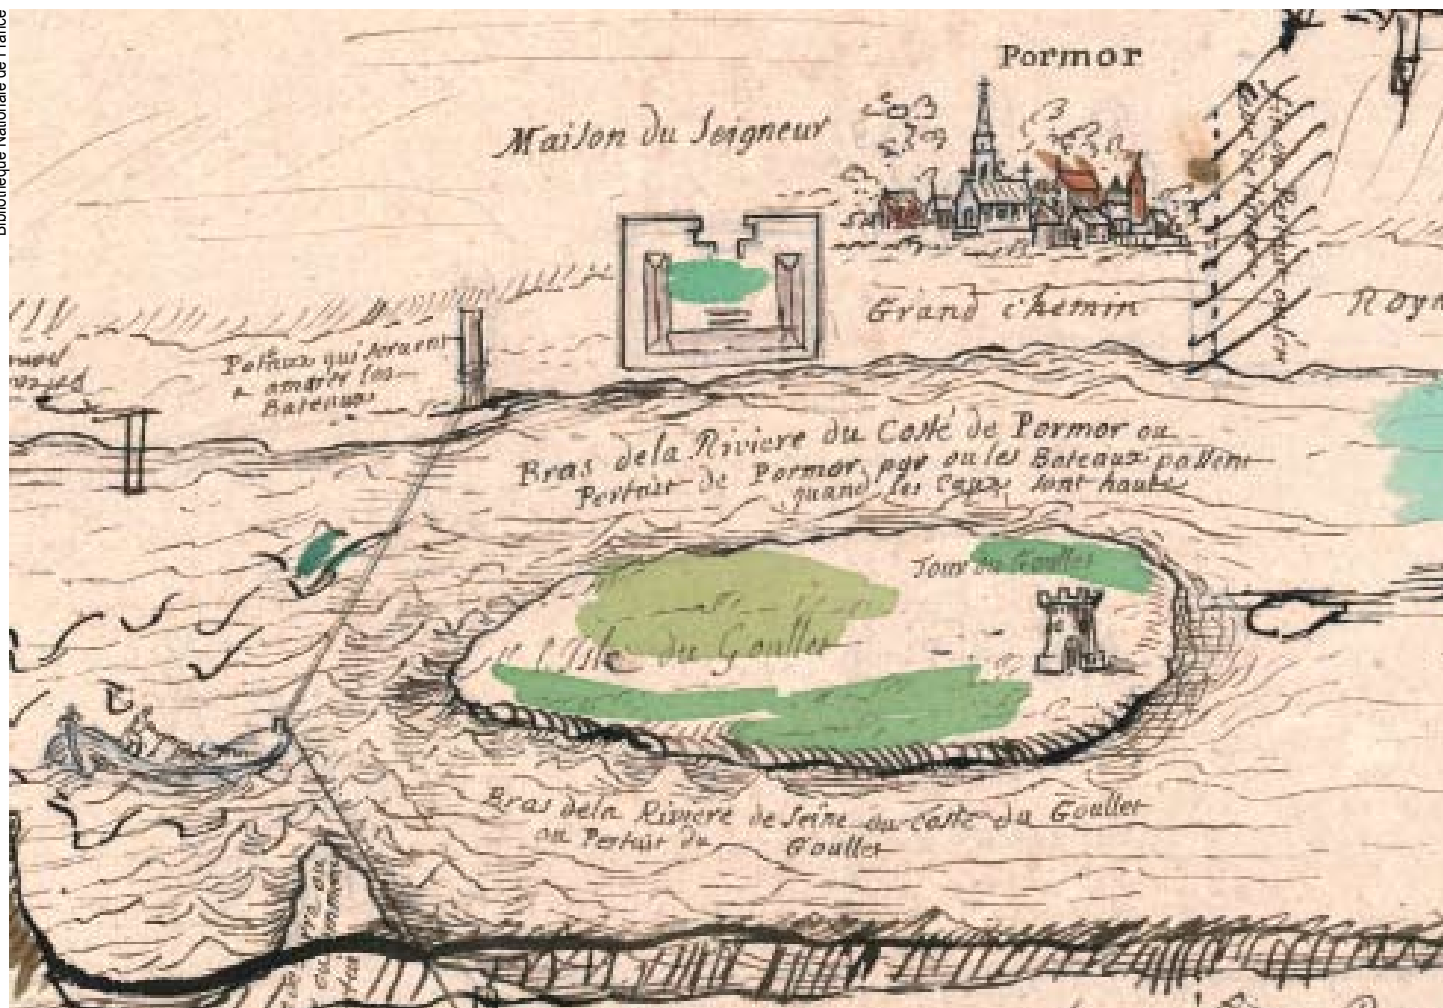 Bibliothèque Nationale de France
Pormor
Maison du Seigneur
Grand chemin
Poteaux qui servent
a amarer les
Bateaux
Bras dela Riviere du Costé de Pormor ou
Pertuit de Pormor, par ou les Bateaux passent
quand les Eaux sont hautes
Tour du Goullet
l'Isle du Goullet
Bras dela Riviere de Seine du Costé du Goullet
ou Pertuit du Goullet